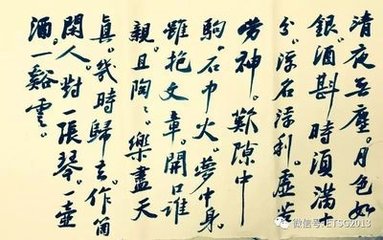 清夜无塵。月色如
銀。酒斟時須滿十
分。浮名浮利。虛苦
勞神。歎隙中
駒。石中火。夢中身。
雖抱文章。開口誰
親。且陶々。樂盡天
真。幾時歸去作箇
閑人。對一張琴。一壺
酒。一谿雲。
微信号: ETSG2013